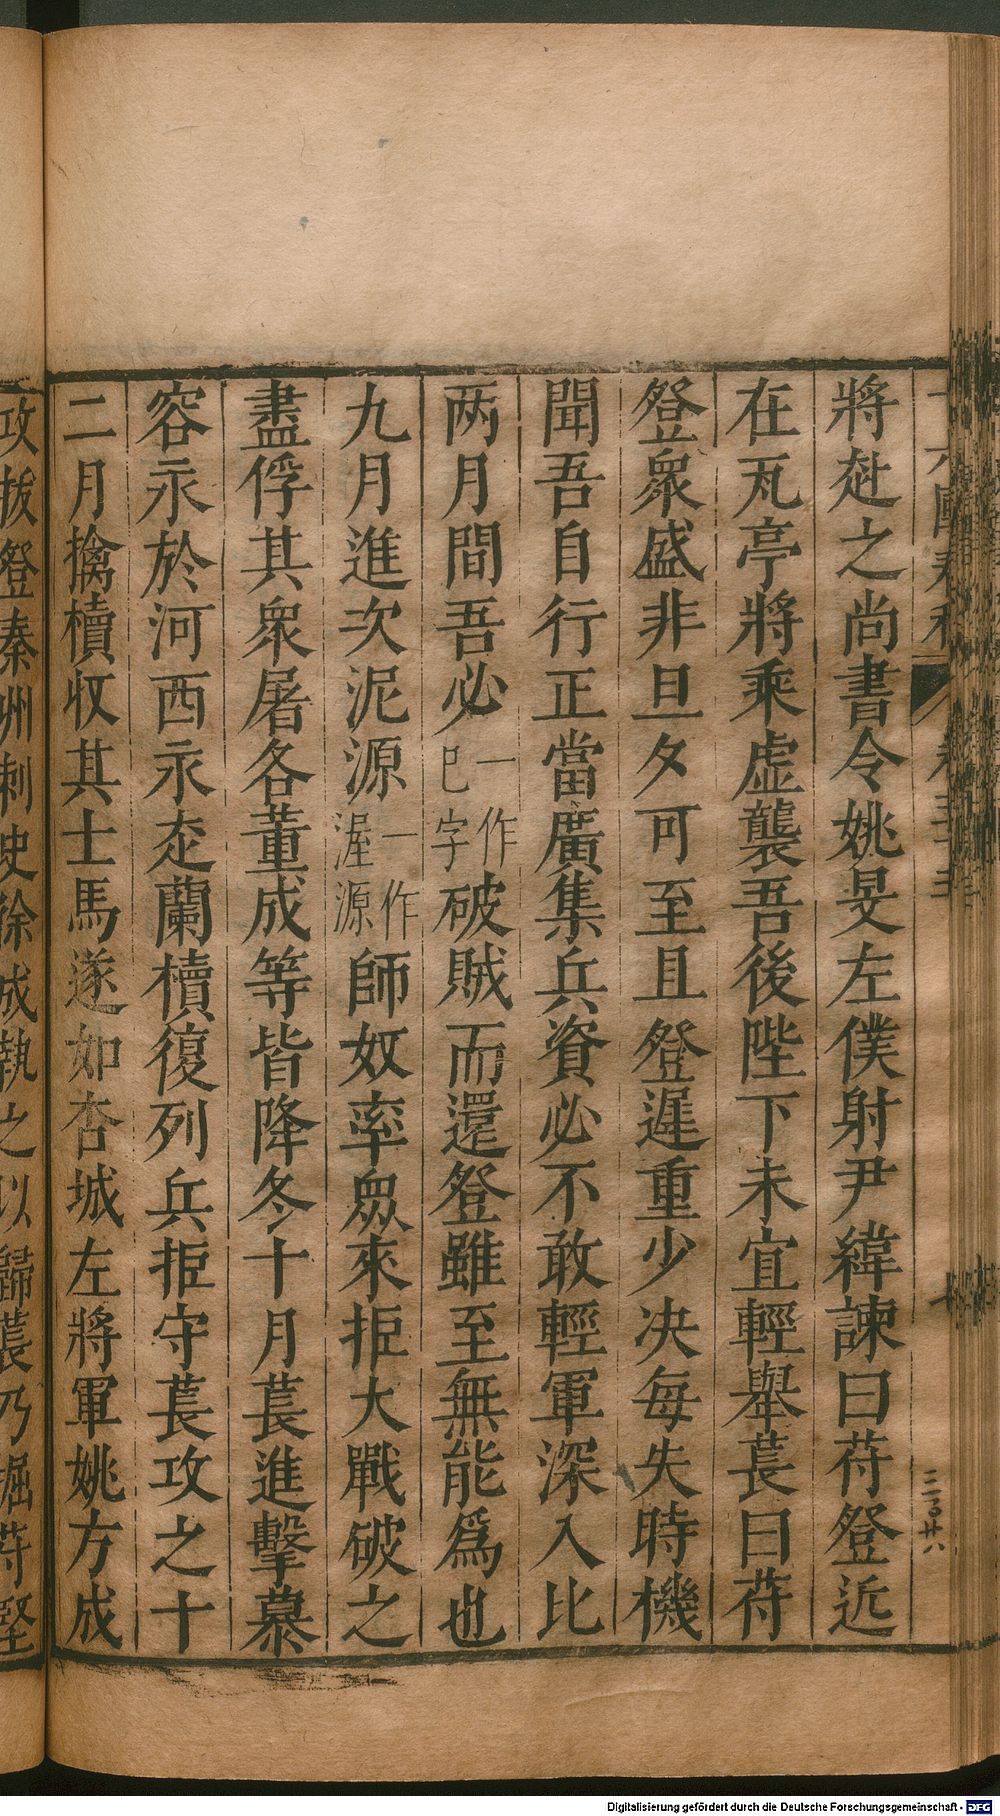 將赴之尚書令姚旻左僕射尹緯諫曰苻登近
在瓦亭將乘虛襲吾後陛下未宜輕舉萇曰苻
登衆盛非旦夕可至且登遲重少决每失時機
聞吾自行正當廣集兵資必不敢輕軍深入比
两月間吾必一作巳字破賊而還登雖至無能爲也
九月進次泥源一作渥源師奴率衆來拒大戰破之
盡俘其衆屠各董成等皆降冬十月萇進擊慕
容永於河西永走蘭櫝復列兵拒守萇攻之十
二月擒櫝收其士馬遂如杏城左將軍姚方成
攻拔登秦州刺史徐成執之以歸萇乃掘苻堅
Digitalisierung gefördert durch die Deutsche Forschungsgemeinschaft - DFG